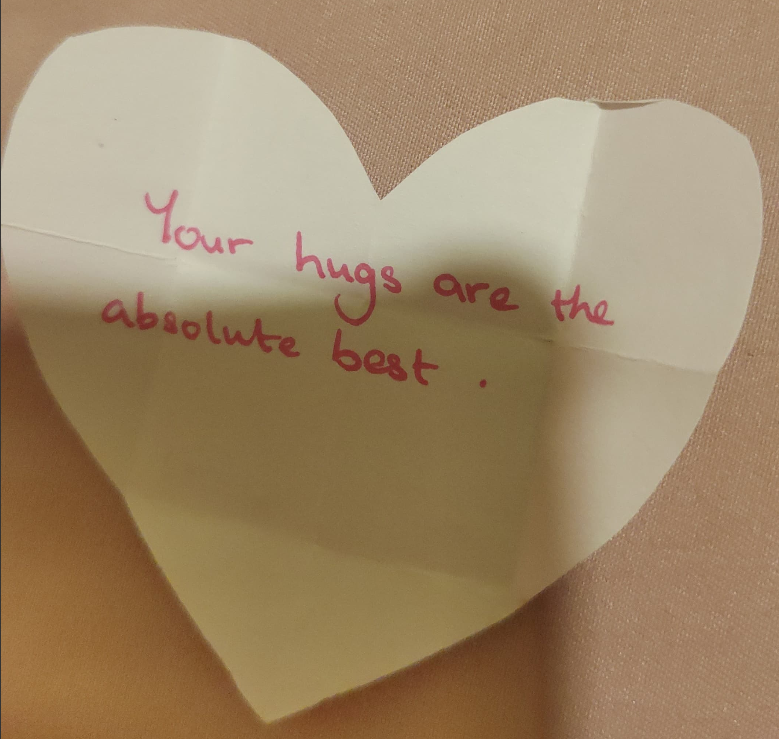 Your hugs are the
absolute best.